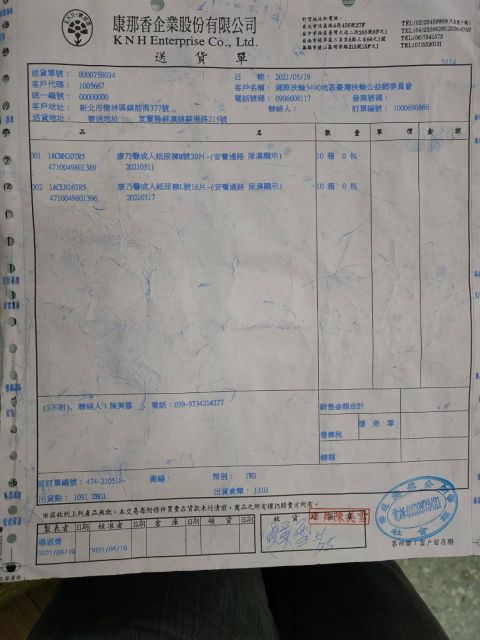 康那香企業股份有限公司
KNH Enterprise Co., Ltd.
送 貨 單
TEL:(02)23459909
TEL:(06)7941573
TEL:(07)5520131
送貨單號： 8000758034
日 期：2021/05/19
客戶代碼： 1005667
客戶名稱：國際扶輪3490地區臺灣扶輪公益網委員會
統一編號： 00000000
電話號碼：0906608117
發票號碼：
客戶地址： 新北市樹林區鎮前街377號
聯絡人：
訂單編號：1000690866
送貨地址： 寄送地址： 宜蘭縣蘇澳鎮蘇港路215號
品 名 數 量 單 價 金 額
001 1ACMN20TR5 康乃馨成人紙尿褲M號20片-(安養通路 尿濕顯示) 10 箱 0 包
4710049801389 20210511
002 1ACLN16TR5 康乃馨成人紙尿褲L號16片-(安養通路 尿濕顯示) 10 箱 0 包
4710049801396 20210517
(2不附)，聯絡人：陳美雪 電話：039-973421#277
銷售金額合計
營業稅
應 免 零
總額
原訂單編號： 474-210518-
搬運：
幣別：
出貨點： 1091 ZB01
出貨倉庫： 1310
※茲收到上列產品無訛，本交易每附條件買賣在貨款未付清前，商品之所有權仍歸賣方所有。
製表者 日期 核准者 日期 倉 庫 日期 領 貨 日期
2021/05/19 2021/05/19
收 貨
陳美雪
第四聯：客戶留存聯